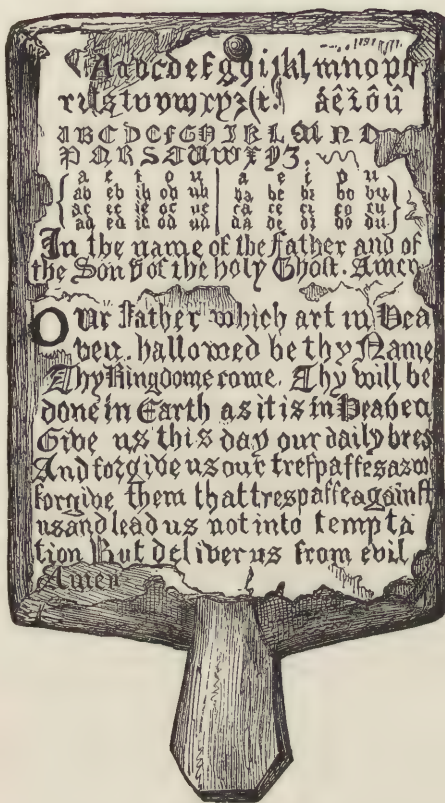 Aabcdefghijklmnopq
rſstuvwxyz&. áêîôû
ABCDEFGHIJKLMNO
PQRSTUWXYZ.
a e i o u a e i o u
ab eb ib ob ub ba be bi bo bu
ac ec ic oc uc ca ce ci co cu
ad ed id od ud da de di do du
In the name of the father and of
the Son & of the holy Ghost. Amen
Our Father which art in Hea
ven. hallowed be thy Name
Thy Kingdome come. Thy will be
done in Earth as it is in Heaven
Give us this day our daily brea
And forgive us our treſpaſſes as we
forgive them that treſpaſſe againſt
us and lead us not into tempta
tion But deliver us from evil
Amen